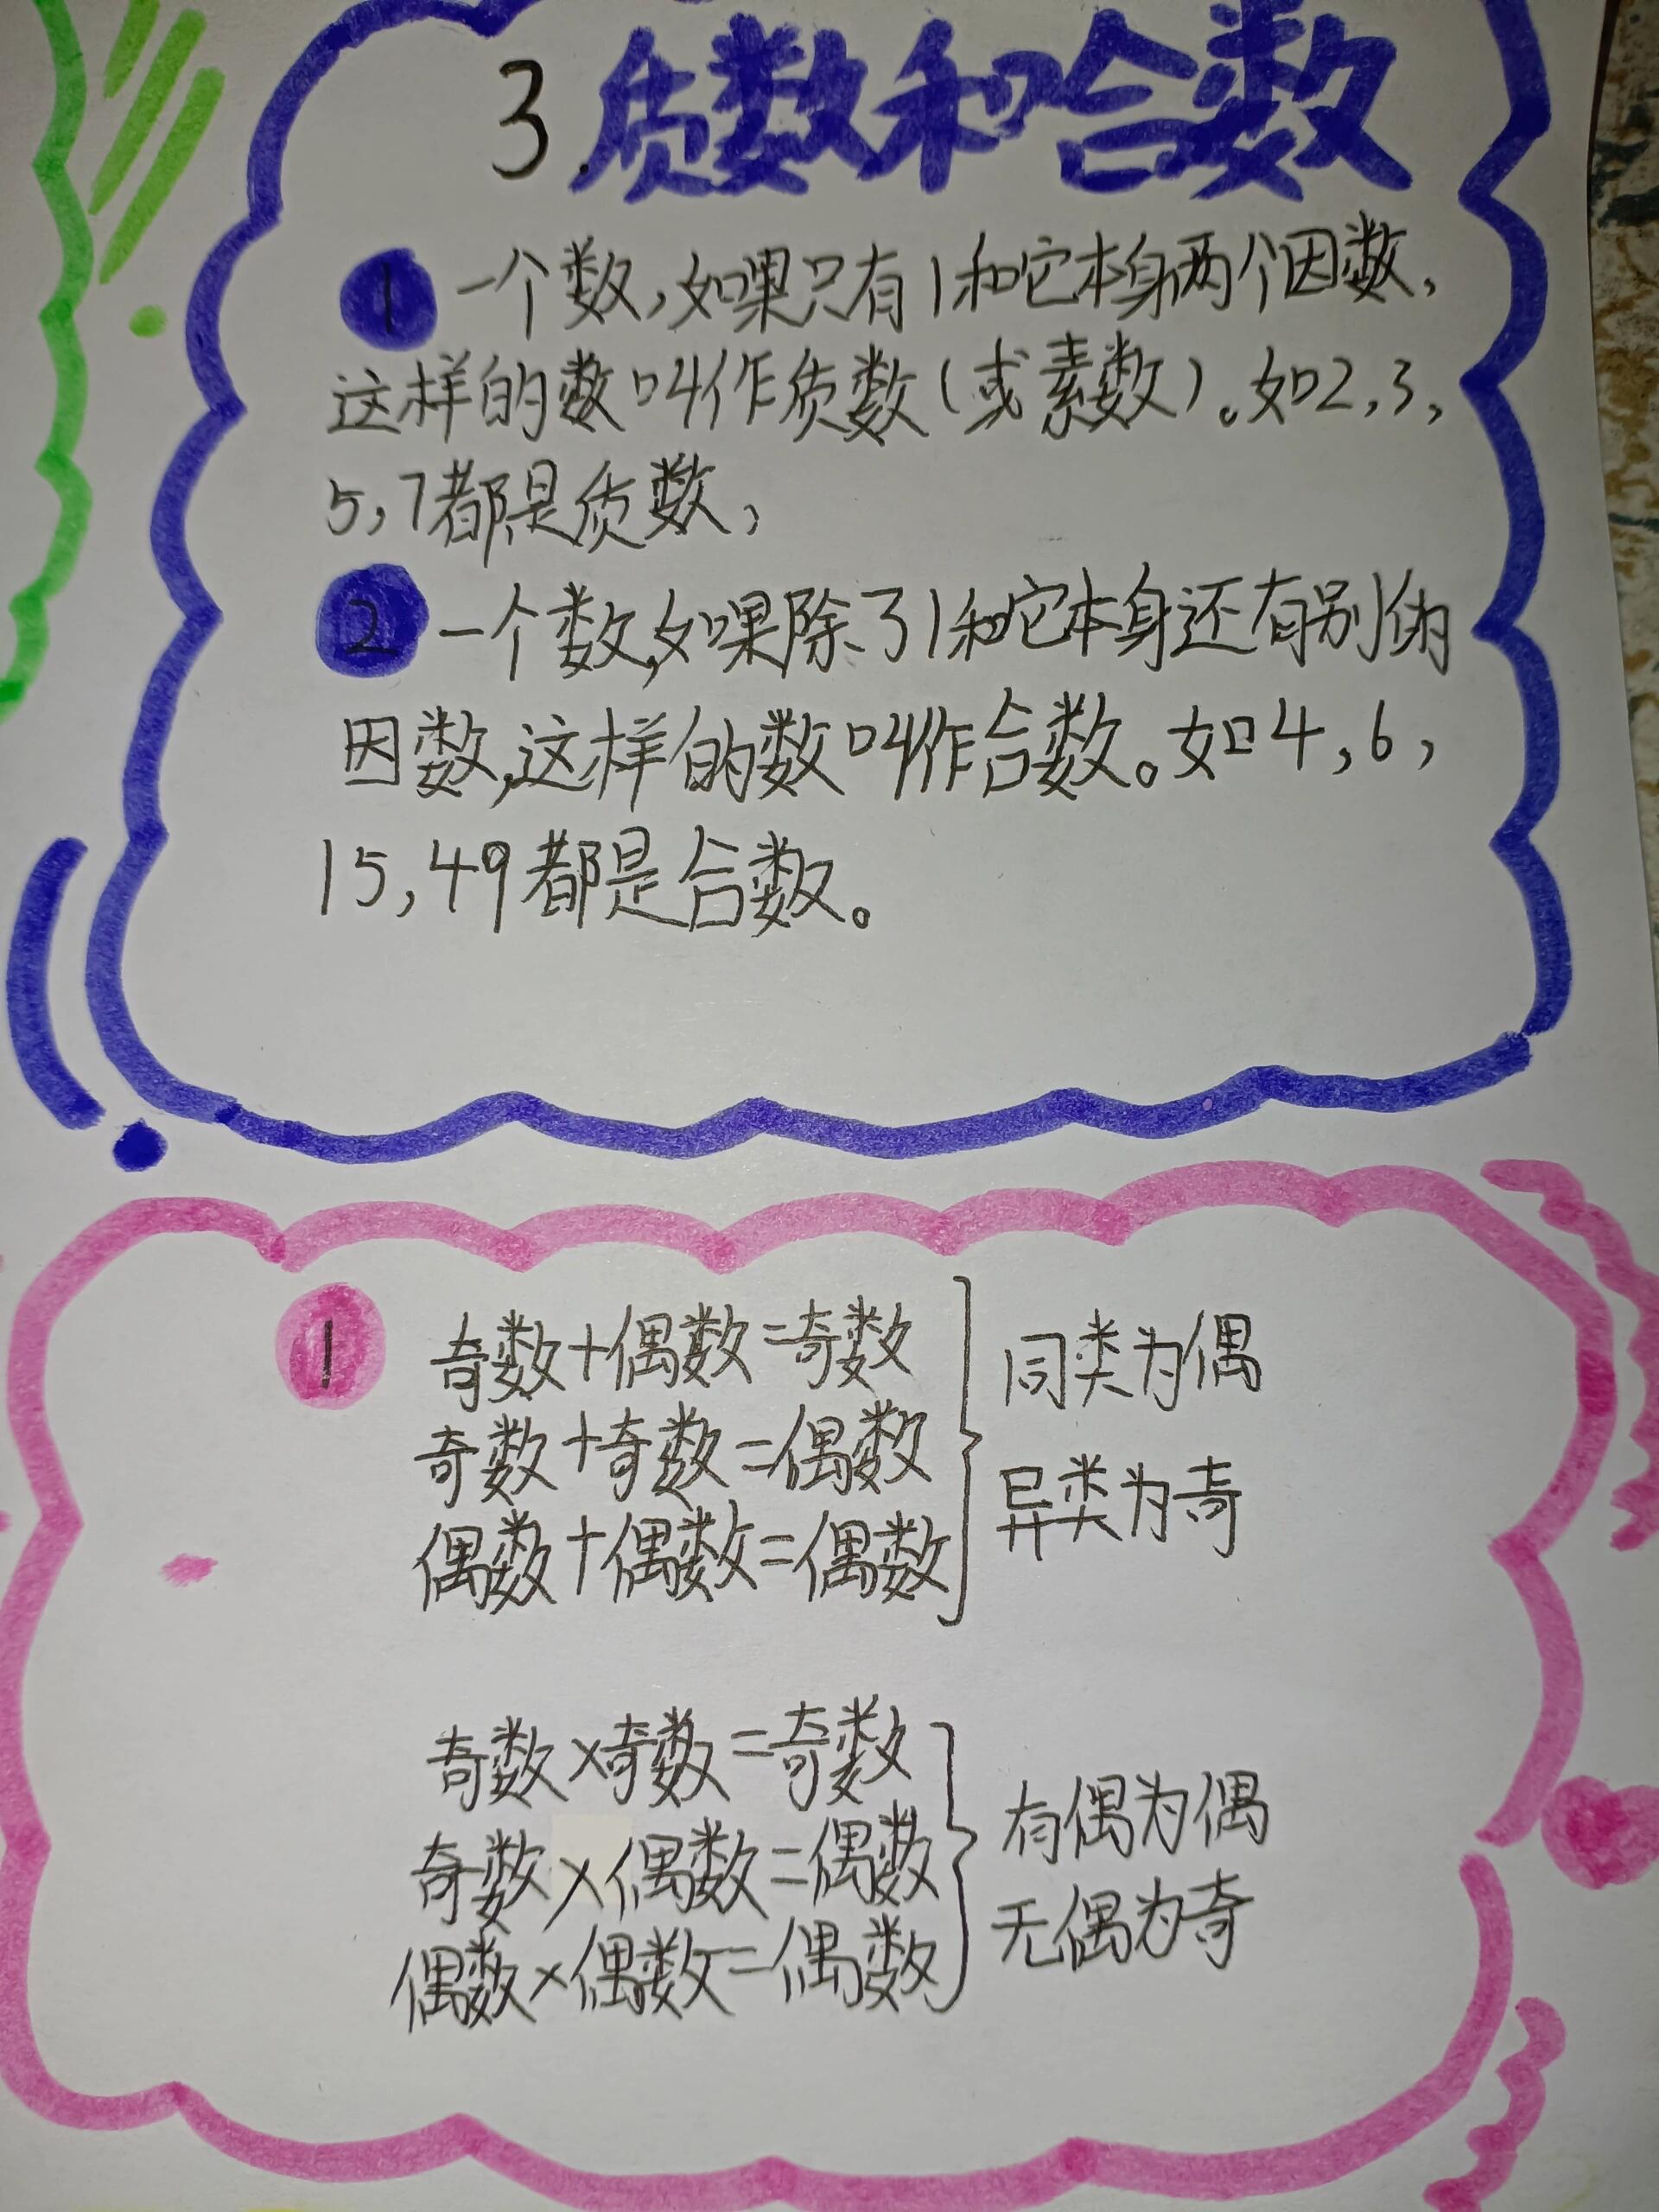 3.质数和合数
① 一个数,如果只有1和它本身两个因数,
这样的数叫作质数(或素数)。如2,3,
5,7都是质数,
② 一个数,如果除了1和它本身还有别的
因数,这样的数叫作合数。如4,6,
15,49都是合数。
① 奇数+偶数=奇数
奇数+奇数=偶数
偶数+偶数=偶数
同类为偶
异类为奇
奇数×奇数=奇数
奇数×偶数=偶数
偶数×偶数=偶数
有偶为偶
无偶为奇